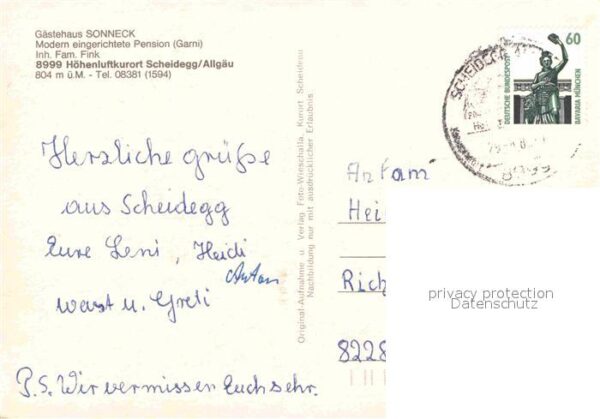 Gästehaus SONNECK
Modern eingerichtete Pension (Garni)
Inh. Fam. Fink
8999 Höhenluftkurort Scheidegg/Allgäu
804 m ü.M. - Tel. 08381 (1594)
Herzliche grüße
aus Scheidegg
Eure Leni, Heidi
Anton
u. Greti
P.S. Wir vermissen Euch sehr.
Original-Aufnahme u. Verlag Foto-Wieschalla Kurort Scheidegg
Nachbildung nur mit ausdrücklicher Erlaubnis
SCHEIDEGG
8999
60
DEUTSCHE BUNDESPOST
BAVARIA MÜNCHEN
An Fam.
Hei
Rich
8228
privacy protection
Datenschutz